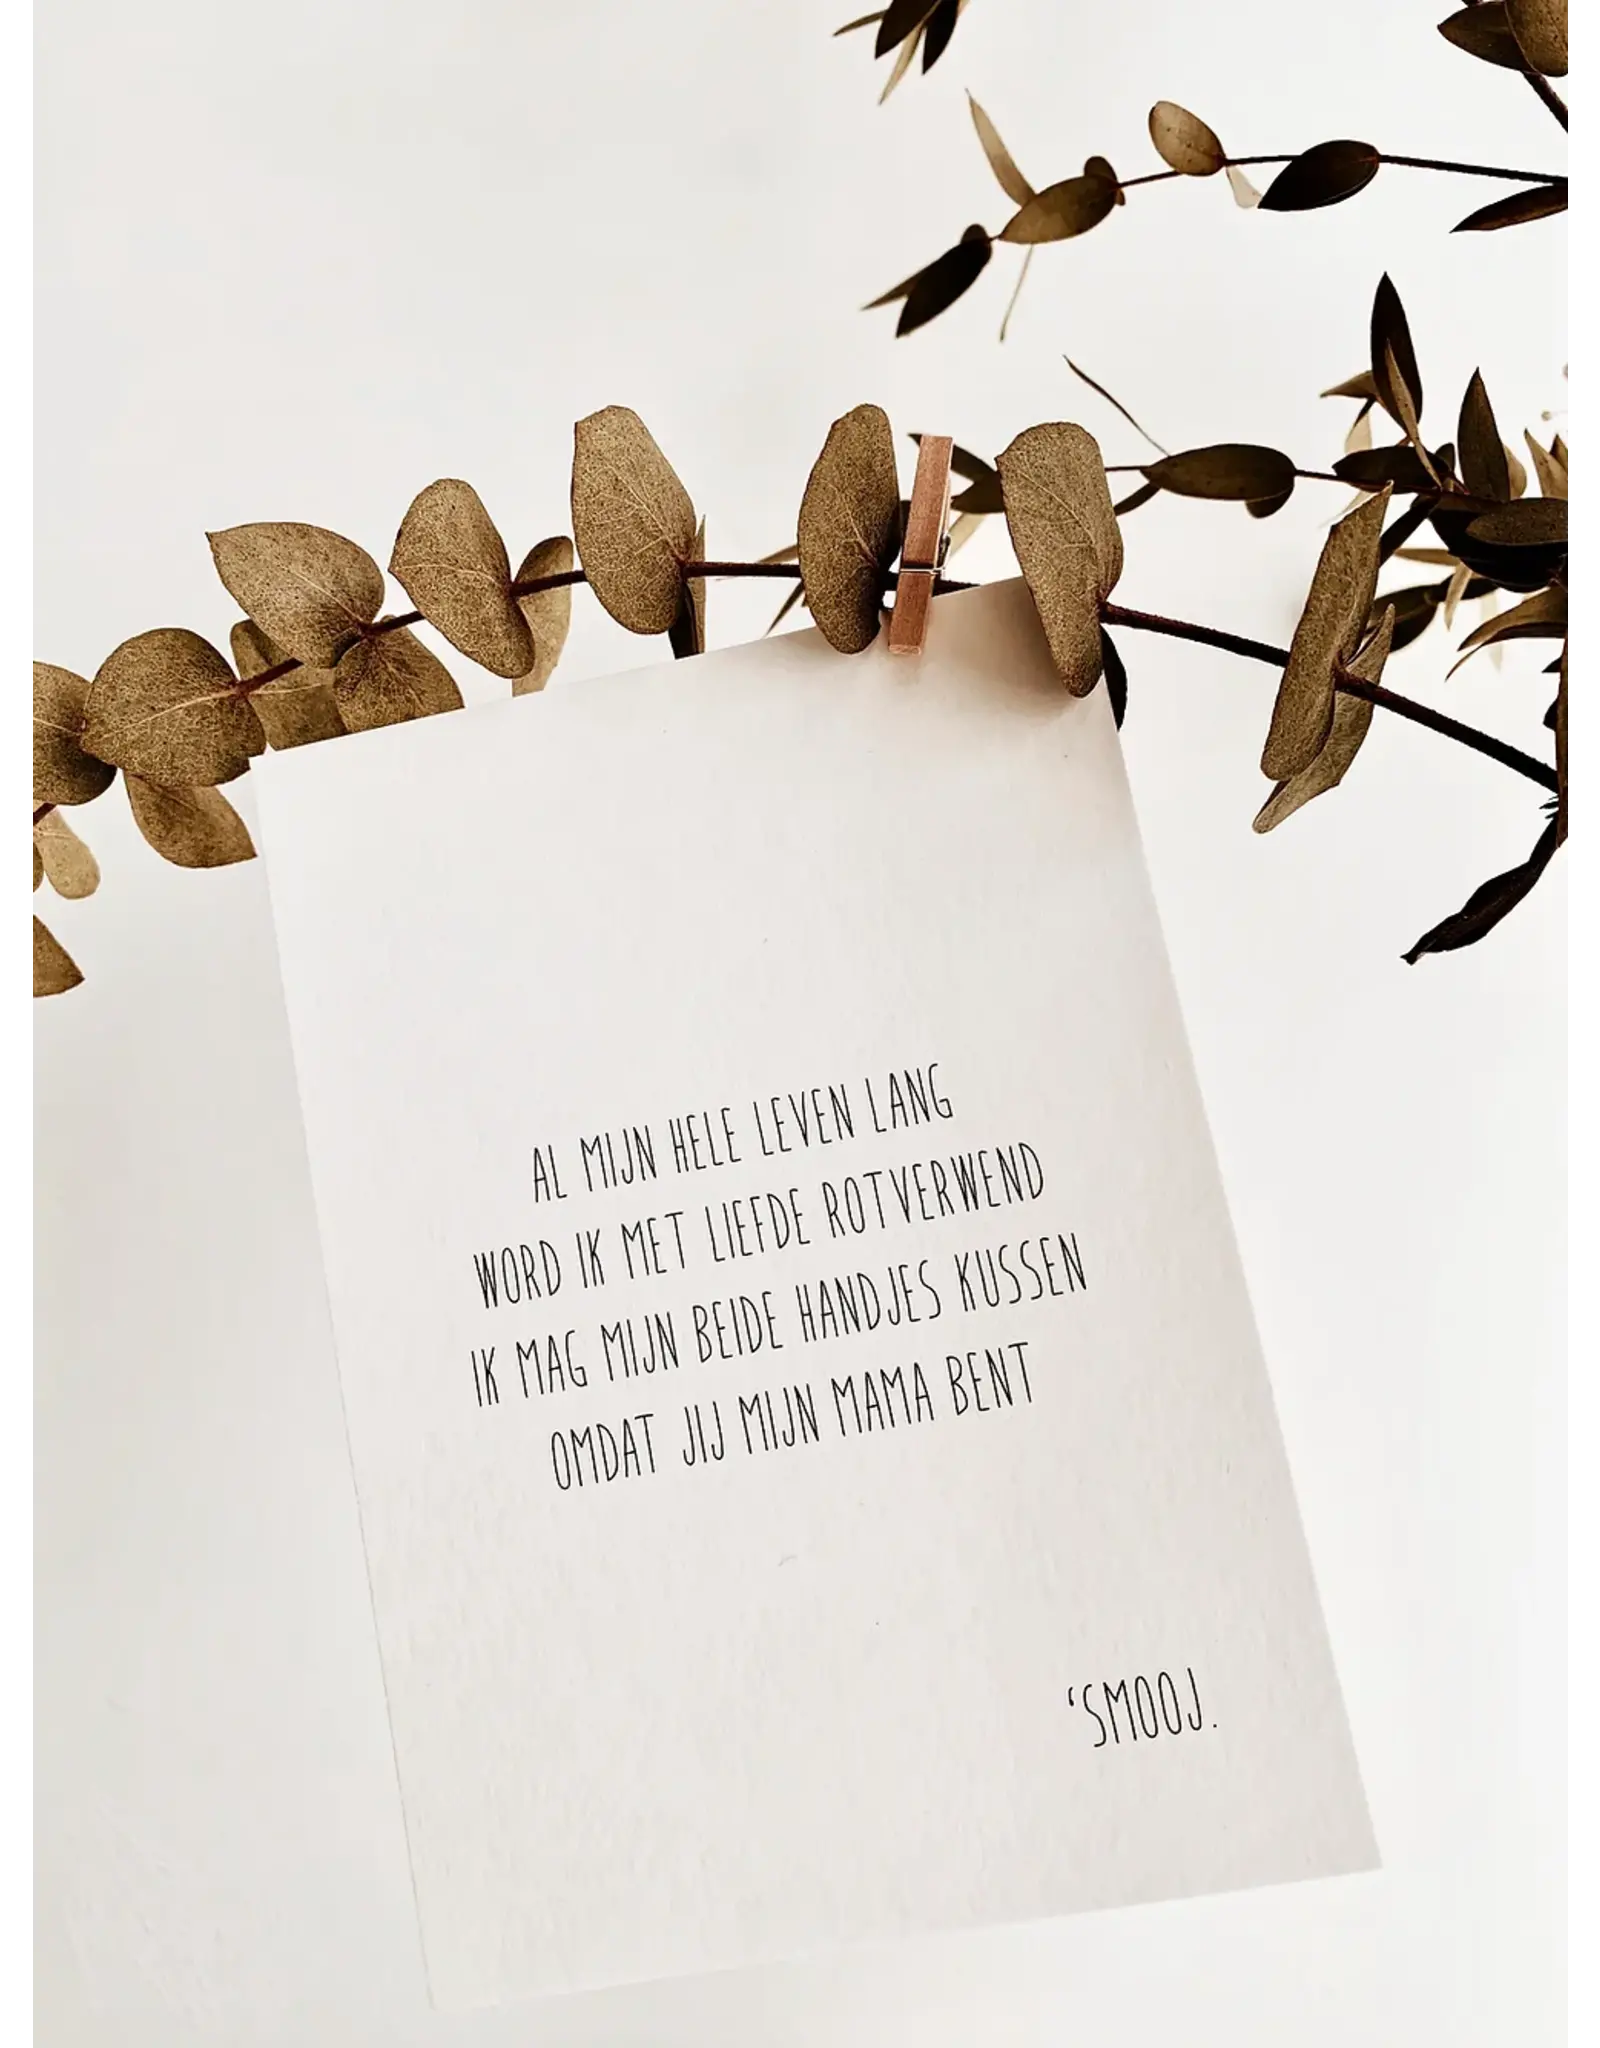 AL MIJN HELE LEVEN LANG
WORD IK MET LIEFDE ROTVERWEND
IK MAG MIJN BEIDE HANDJES KUSSEN
OMDAT JIJ MIJN MAMA BENT
‘SMOOJ.